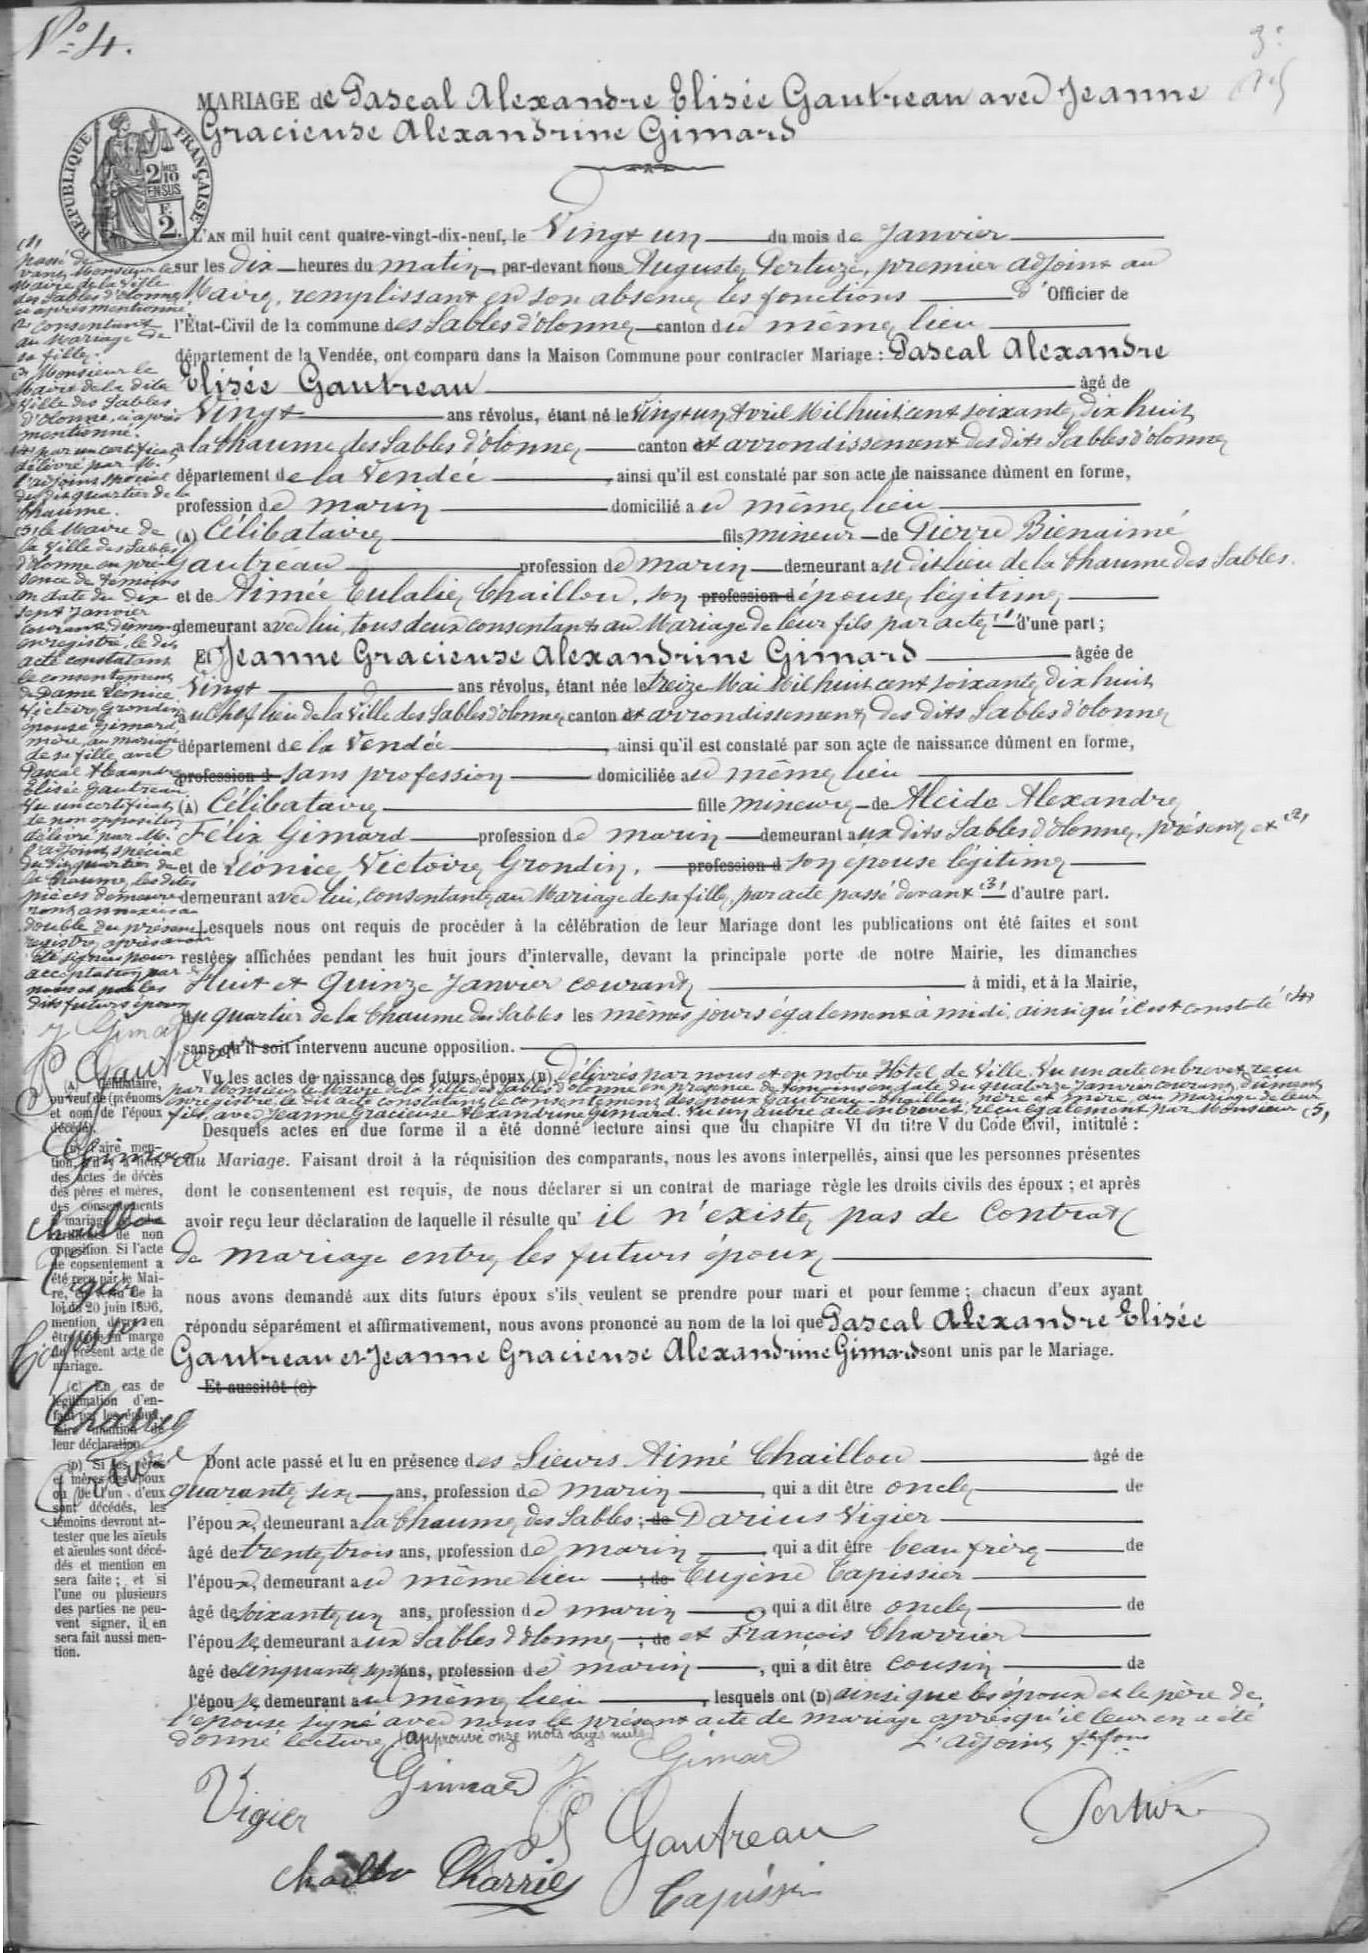 N° 4.
3e
MARIAGE de Pascal Alexandre Elisée Gautreau avec Jeanne
Gracieuse Alexandrine Gimard
RÉPUBLIQUE FRANÇAISE
2/10
EN SUS
F.
2.
L'AN mil huit cent quatre-vingt-dix-neuf, le Vingt un du mois de Janvier
sur les dix heures du matin, par-devant nous Auguste Pertuzé, premier adjoint au
Maire, remplissant en son absence les fonctions d'Officier de
l'État-Civil de la commune des Sables d'Olonne canton du même lieu
département de la Vendée, ont comparu dans la Maison Commune pour contracter Mariage : Pascal Alexandre
Elisée Gautreau âgé de
Vingt ans révolus, étant né le Vingt un Avril Mil huit cent soixante dix huit
à la Chaume des Sables d'Olonne canton et arrondissement des dits Sables d'Olonne
département de la Vendée, ainsi qu'il est constaté par son acte de naissance dûment en forme,
profession de marin domicilié au même lieu
(A) Célibataire fils mineur de Pierre Bienaimé
Gautreau profession de marin demeurant au dit lieu de la Chaume des Sables.
et de Aimée Eulalie Chaillou, son profession d épouse légitime
demeurant avec lui, tous deux consentants au Mariage de leur fils par acte (1) d'une part ;
Et Jeanne Gracieuse Alexandrine Gimard âgée de
Vingt ans révolus, étant née le treize Mai Mil huit cent soixante dix huit
au Chef lieu de la Ville des Sables d'Olonne canton et arrondissement des dits Sables d'Olonne
département de la Vendée, ainsi qu'il est constaté par son acte de naissance dûment en forme,
profession d sans profession domiciliée au même lieu
(A) Célibataire fille mineure de Alcide Alexandre
Félix Gimard profession de marin demeurant aux dits Sables d'Olonne, présent et (2)
et de Léonice Victoire Grondin, profession d son épouse légitime
demeurant avec lui, consentante au Mariage de sa fille, par acte passé devant (3) d'autre part.
Lesquels nous ont requis de procéder à la célébration de leur Mariage dont les publications ont été faites et sont
restées affichées pendant les huit jours d'intervalle, devant la principale porte de notre Mairie, les dimanches
Huit et Quinze Janvier courant à midi, et à la Mairie,
au quartier de la Chaume des Sables les mêmes jours également à midi, ainsi qu'il est constaté (4)
sans qu'il soit intervenu aucune opposition.
Vu les actes de naissance des futurs époux (B) délivrés par nous et en notre Hôtel de Ville. Vu un acte en brevet reçu
par Monsieur le Maire de la Ville des Sables d'Olonne en présence de témoins en date du quatorze Janvier courant, dûment
enregistré, le dit acte constatant le consentement des époux Gautreau-Chaillou, père et mère, au mariage de leur
fils, avec Jeanne Gracieuse Alexandrine Gimard. Vu un autre acte en brevet, reçu également par Monsieur (5)
Desquels actes en due forme il a été donné lecture ainsi que du chapitre VI du titre V du Code Civil, intitulé :
du Mariage. Faisant droit à la réquisition des comparants, nous les avons interpellés, ainsi que les personnes présentes
dont le consentement est requis, de nous déclarer si un contrat de mariage règle les droits civils des époux ; et après
avoir reçu leur déclaration de laquelle il résulte qu'il n'existe pas de Contrat
de mariage entre les futurs époux
nous avons demandé aux dits futurs époux s'ils veulent se prendre pour mari et pour femme ; chacun d'eux ayant
répondu séparément et affirmativement, nous avons prononcé au nom de la loi que Pascal Alexandre Elisée
Gautreau et Jeanne Gracieuse Alexandrine Gimard sont unis par le Mariage.
Et aussitôt (C)
Dont acte passé et lu en présence des Sieurs Aimé Chaillou âgé de
quarante six ans, profession de marin, qui a dit être oncle de
l'époux, demeurant à la Chaume des Sables ; de Darius Vigier
âgé de trente trois ans, profession de marin, qui a dit être beau frère de
l'époux, demeurant au même lieu ; de Eugène Tapissier
âgé de soixante un ans, profession de marin, qui a dit être oncle de
l'épouse, demeurant aux Sables d'Olonne ; de et François Charrier
âgé de cinquante sept ans, profession de marin, qui a dit être cousin de
l'épouse, demeurant au même lieu, lesquels ont (D) ainsi que les époux et le père de
l'épouse signé avec nous le présent acte de mariage après qu'il leur en a été
donné lecture. (Approuvé onze mots rayés nuls) L'adjoint ff. fons
Gimard J Gimard
Vigier P Gautreau Pertuzé
Chaillou Charrier Tapissier
(1)
passé de-
vant Monsieur le
Maire de la Ville
des Sables d'Olonne
ci après mentionné
(2) consentant
au Mariage de
sa fille.
(3) Monsieur le
Maire de la dite
Ville des Sables
d'Olonne, ci après
mentionné.
(4) par un certificat
délivré par M.
l'adjoint spécial
du dit quartier de la
Chaume.
(5) le Maire de
la Ville des Sables
d'Olonne en pré-
sence de témoins
en date du dix
sept Janvier
courant dûment
enregistré, le dit
acte constatant
le consentement
de Dame Léonice
Victoire Grondin
épouse Gimard,
mère, au mariage
de sa fille avec
Pascal Alexandre
Elisée Gautreau
Vu un certificat
de non opposition
délivré par M.
l'adjoint spécial
du dit quartier de
la Chaume, les dites
pièces demeure-
ront annexées au
double du présent
registre après avoir
été signées pour
acceptation par
nous et par les
dits futurs époux
J Gimard
P Gautreau
Gimard
Chaillou
Vigier
Tapissier
Charrier
Pertuzé
(A) Célibataire,
ou veuf de (prénoms
et nom de l'époux
décédé).
(B) Faire men-
tion, s'il y a lieu,
des actes de décès
des pères et mères,
des consentements
à mariage,
de non
opposition. Si l'acte
de consentement a
été reçu par le Mai-
re, en vertu de la
loi du 20 juin 1896,
mention devra en
être faite en marge
du présent acte de
mariage.
(C) En cas de
légitimation d'en-
fant par les époux,
faire mention de
leur déclaration.
(D) Si les pères
et mères des époux
ou de l'un d'eux
sont décédés, les
témoins devront at-
tester que les aïeuls
et aïeules sont décé-
dés et mention en
sera faite ; et si
l'une ou plusieurs
des parties ne peu-
vent signer, il en
sera fait aussi men-
tion.